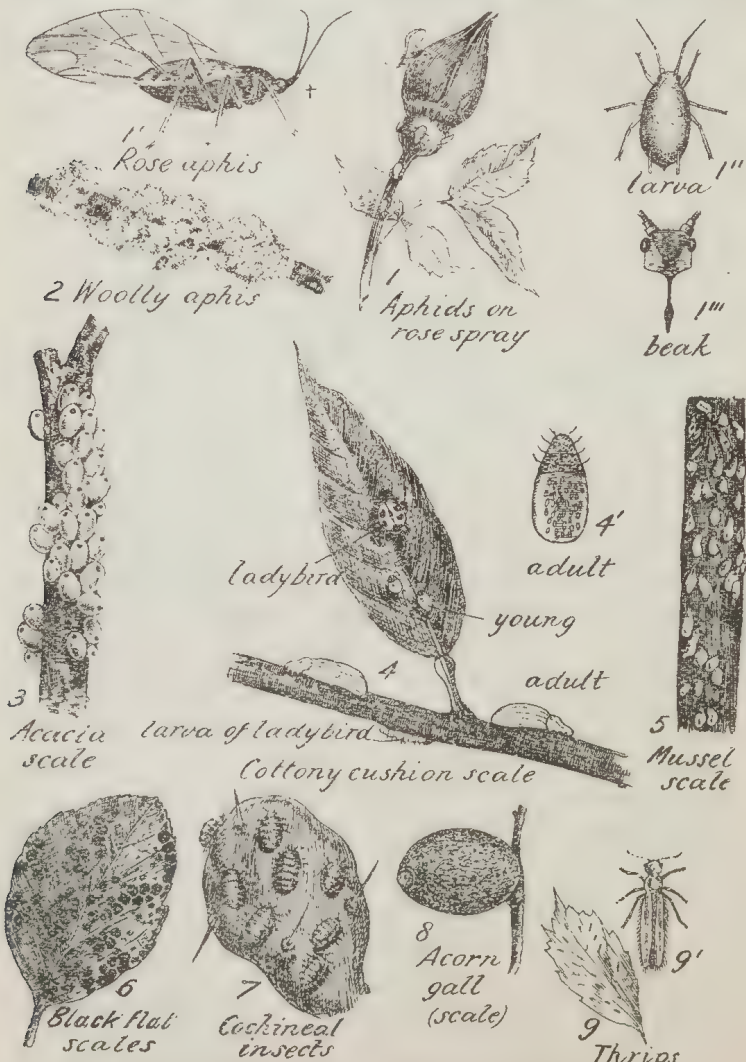 1'
Rose aphis
2 Woolly aphis
1
Aphids on
rose spray
larva 1''
1'''
beak
3
Acacia
scale
ladybird
young
4
adult
larva of ladybird
Cottony cushion scale
4'
adult
5
Mussel
scale
6
Black flat
scales
7
Cochineal
insects
8
Acorn
gall
(scale)
9
9'
Thrips